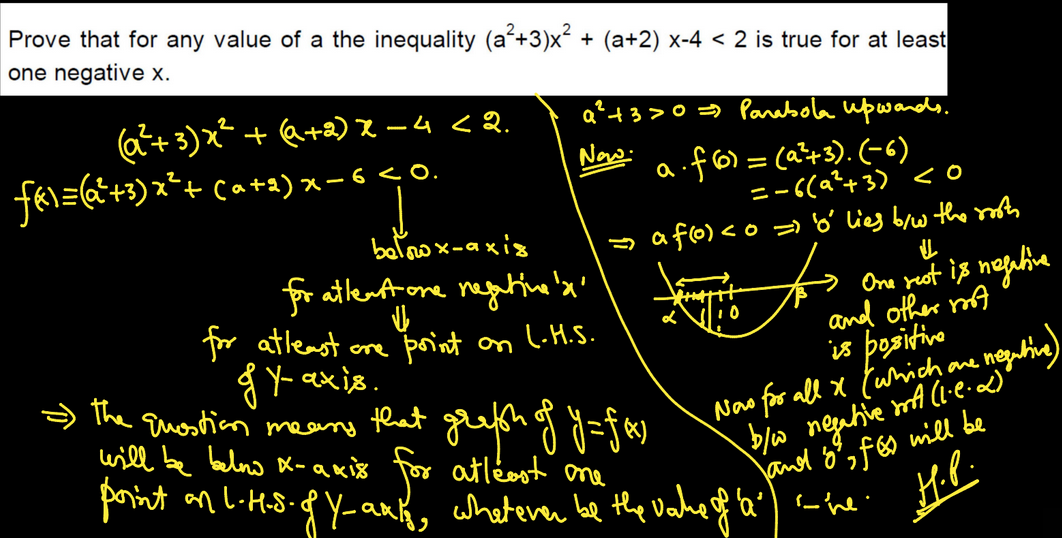 Prove that for any value of a the inequality (a²+3)x² + (a+2) x-4 < 2 is true for at least
one negative x.
(a²+3)x² + (a+2)x - 4 < 2.
f(x)≡(a²+3)x² + (a+2)x-6 < 0.
below x-axis
for atleast one negative 'x'
⇓
for atleast one point on L.H.S.
of Y-axis.
⇒ The question means that graph of y=f(x)
will be below x-axis for atleast one
point on L.H.S. of Y-axis, whatever be the value of 'a'
a²+3>0 ⇒ Parabola upwards.
Now: a.f(0) = (a²+3).(-6)
= -6(a²+3) < 0
⇒ af(0)<0 ⇒ '0' lies b/w the roots
⇓
One root is negative
and other root
is positive
α 0 β
Now for all x (which are negative)
b/w negative root (i.e. α)
and '0', f(x) will be
'-'ve.
H.P.